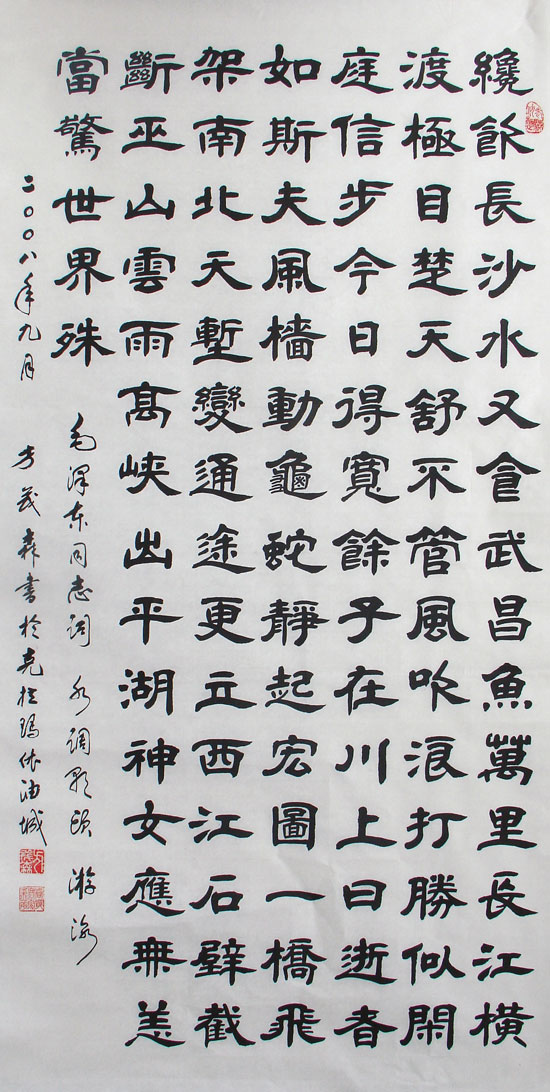 纔飲長沙水又食武昌魚萬里長江橫
渡極目楚天舒不管風吹浪打勝似閑
庭信步今日得寬餘子在川上曰逝者
如斯夫風檣動龜蛇靜起宏圖一橋飛
架南北天塹變通途更立西江石壁截
斷巫山雲雨高峽出平湖神女應無恙
當驚世界殊
毛澤东同志詞 水調歌頭 游泳
二〇〇八年九月 方茂森書於克拉瑪依油城